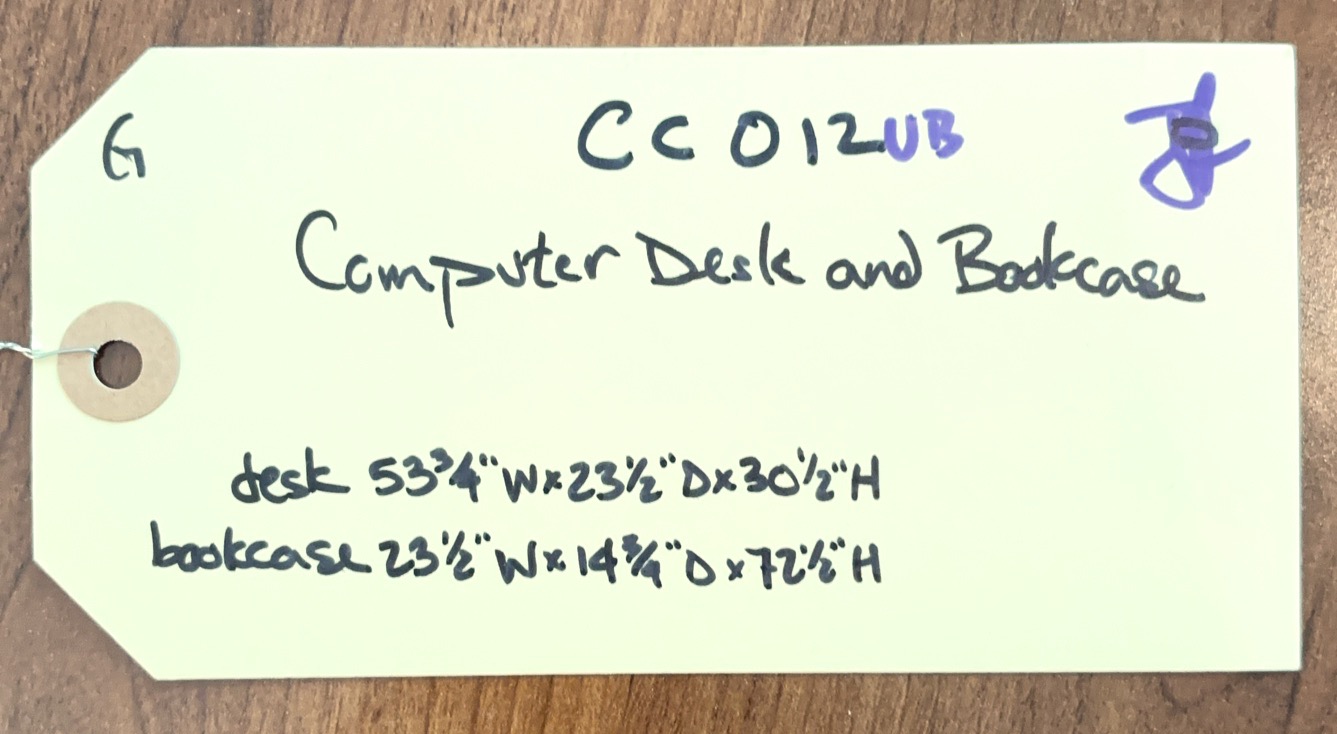 G
CC012UB
Computer Desk and Bookcase
desk 53¾"W×23½"D×30½"H
bookcase 23½"W×14¾"D×72½"H